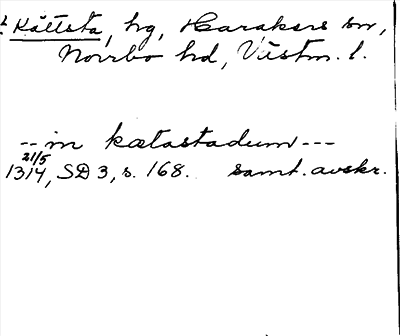 Kättsta, hg, Harakers sn,
Norrbo hd, Västm. l.
-- in kætastadum ---
21/5
1314, SD 3, s. 168. samt. avskr.